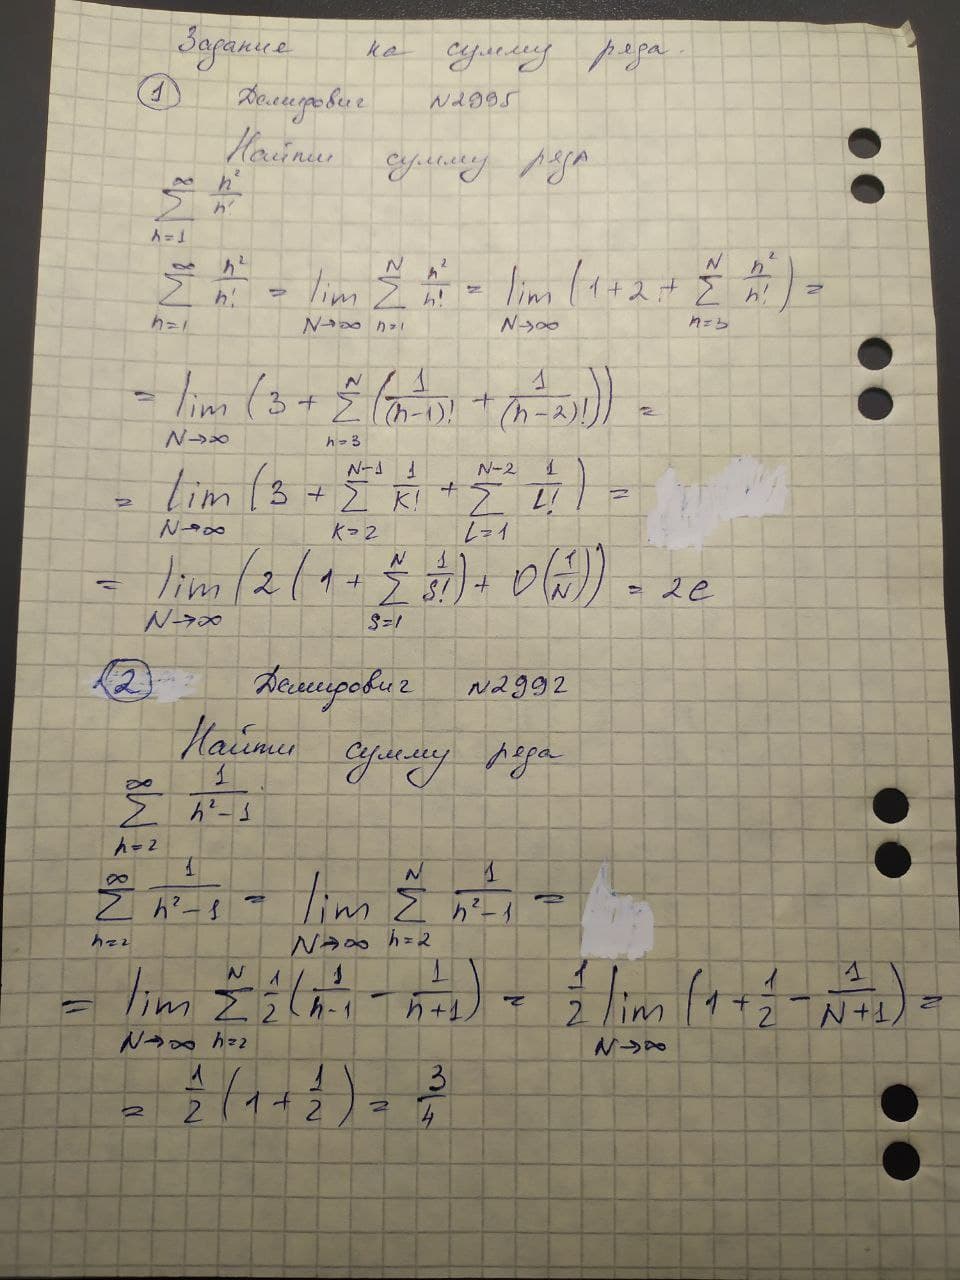 Задание на сумму ряда.
1 Демидович N2995
Найти сумму ряда
∑_{n=1}^{∞} n²/n!
∑_{n=1}^{∞} n²/n! = lim_{N→∞} ∑_{n=1}^{N} n²/n! = lim_{N→∞} (1+2+∑_{n=3}^{N} n²/n!) =
= lim_{N→∞} (3 + ∑_{n=3}^{N} (1/(n-1)! + 1/(n-2)!)) =
= lim_{N→∞} (3 + ∑_{K=2}^{N-1} 1/K! + ∑_{L=1}^{N-2} 1/L!) =
= lim_{N→∞} (2(1 + ∑_{S=1}^{N} 1/S!) + O(1/N)) = 2e
2 Демидович N2992
Найти сумму ряда
∑_{n=2}^{∞} 1/(n²-1)
∑_{n=2}^{∞} 1/(n²-1) = lim_{N→∞} ∑_{n=2}^{N} 1/(n²-1) =
= lim_{N→∞} ∑_{n=2}^{N} 1/2 (1/(n-1) - 1/(n+1)) = 1/2 lim_{N→∞} (1 + 1/2 - 1/(N+1)) =
= 1/2 (1 + 1/2) = 3/4